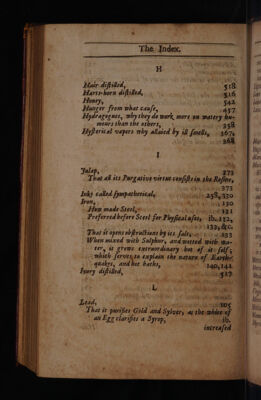 The Index.
H
Hair distilled, 518
Harts-horn distilled, 516
Honey, 542
Hunger from what cause, 457
Hydragogues, why they do work more on watery humours than the others, 258
Hysterical vapors why allaied by ill smells, 267, 268
I
Jalap, 272
That all its Purgative virtue consists in the Rosine, 273
Inks called sympathetical, 258, 350
Iron, 130
How made Steel, 131
Preferred before Steel for Physical uses, ib. 132, 133, &c.
That it opens obstructions by its salt, 133
When mixed with Sulphur, and wetted with water, it grows extraordinary hot of it self; which serves to explain the nature of Earthquakes, and hot baths, 140, 141
Ivory distilled, 517
L
Lead, 105
That it purifies Gold and Sylver, as the white of an Egg clarifies a Syrop, ib.
increased